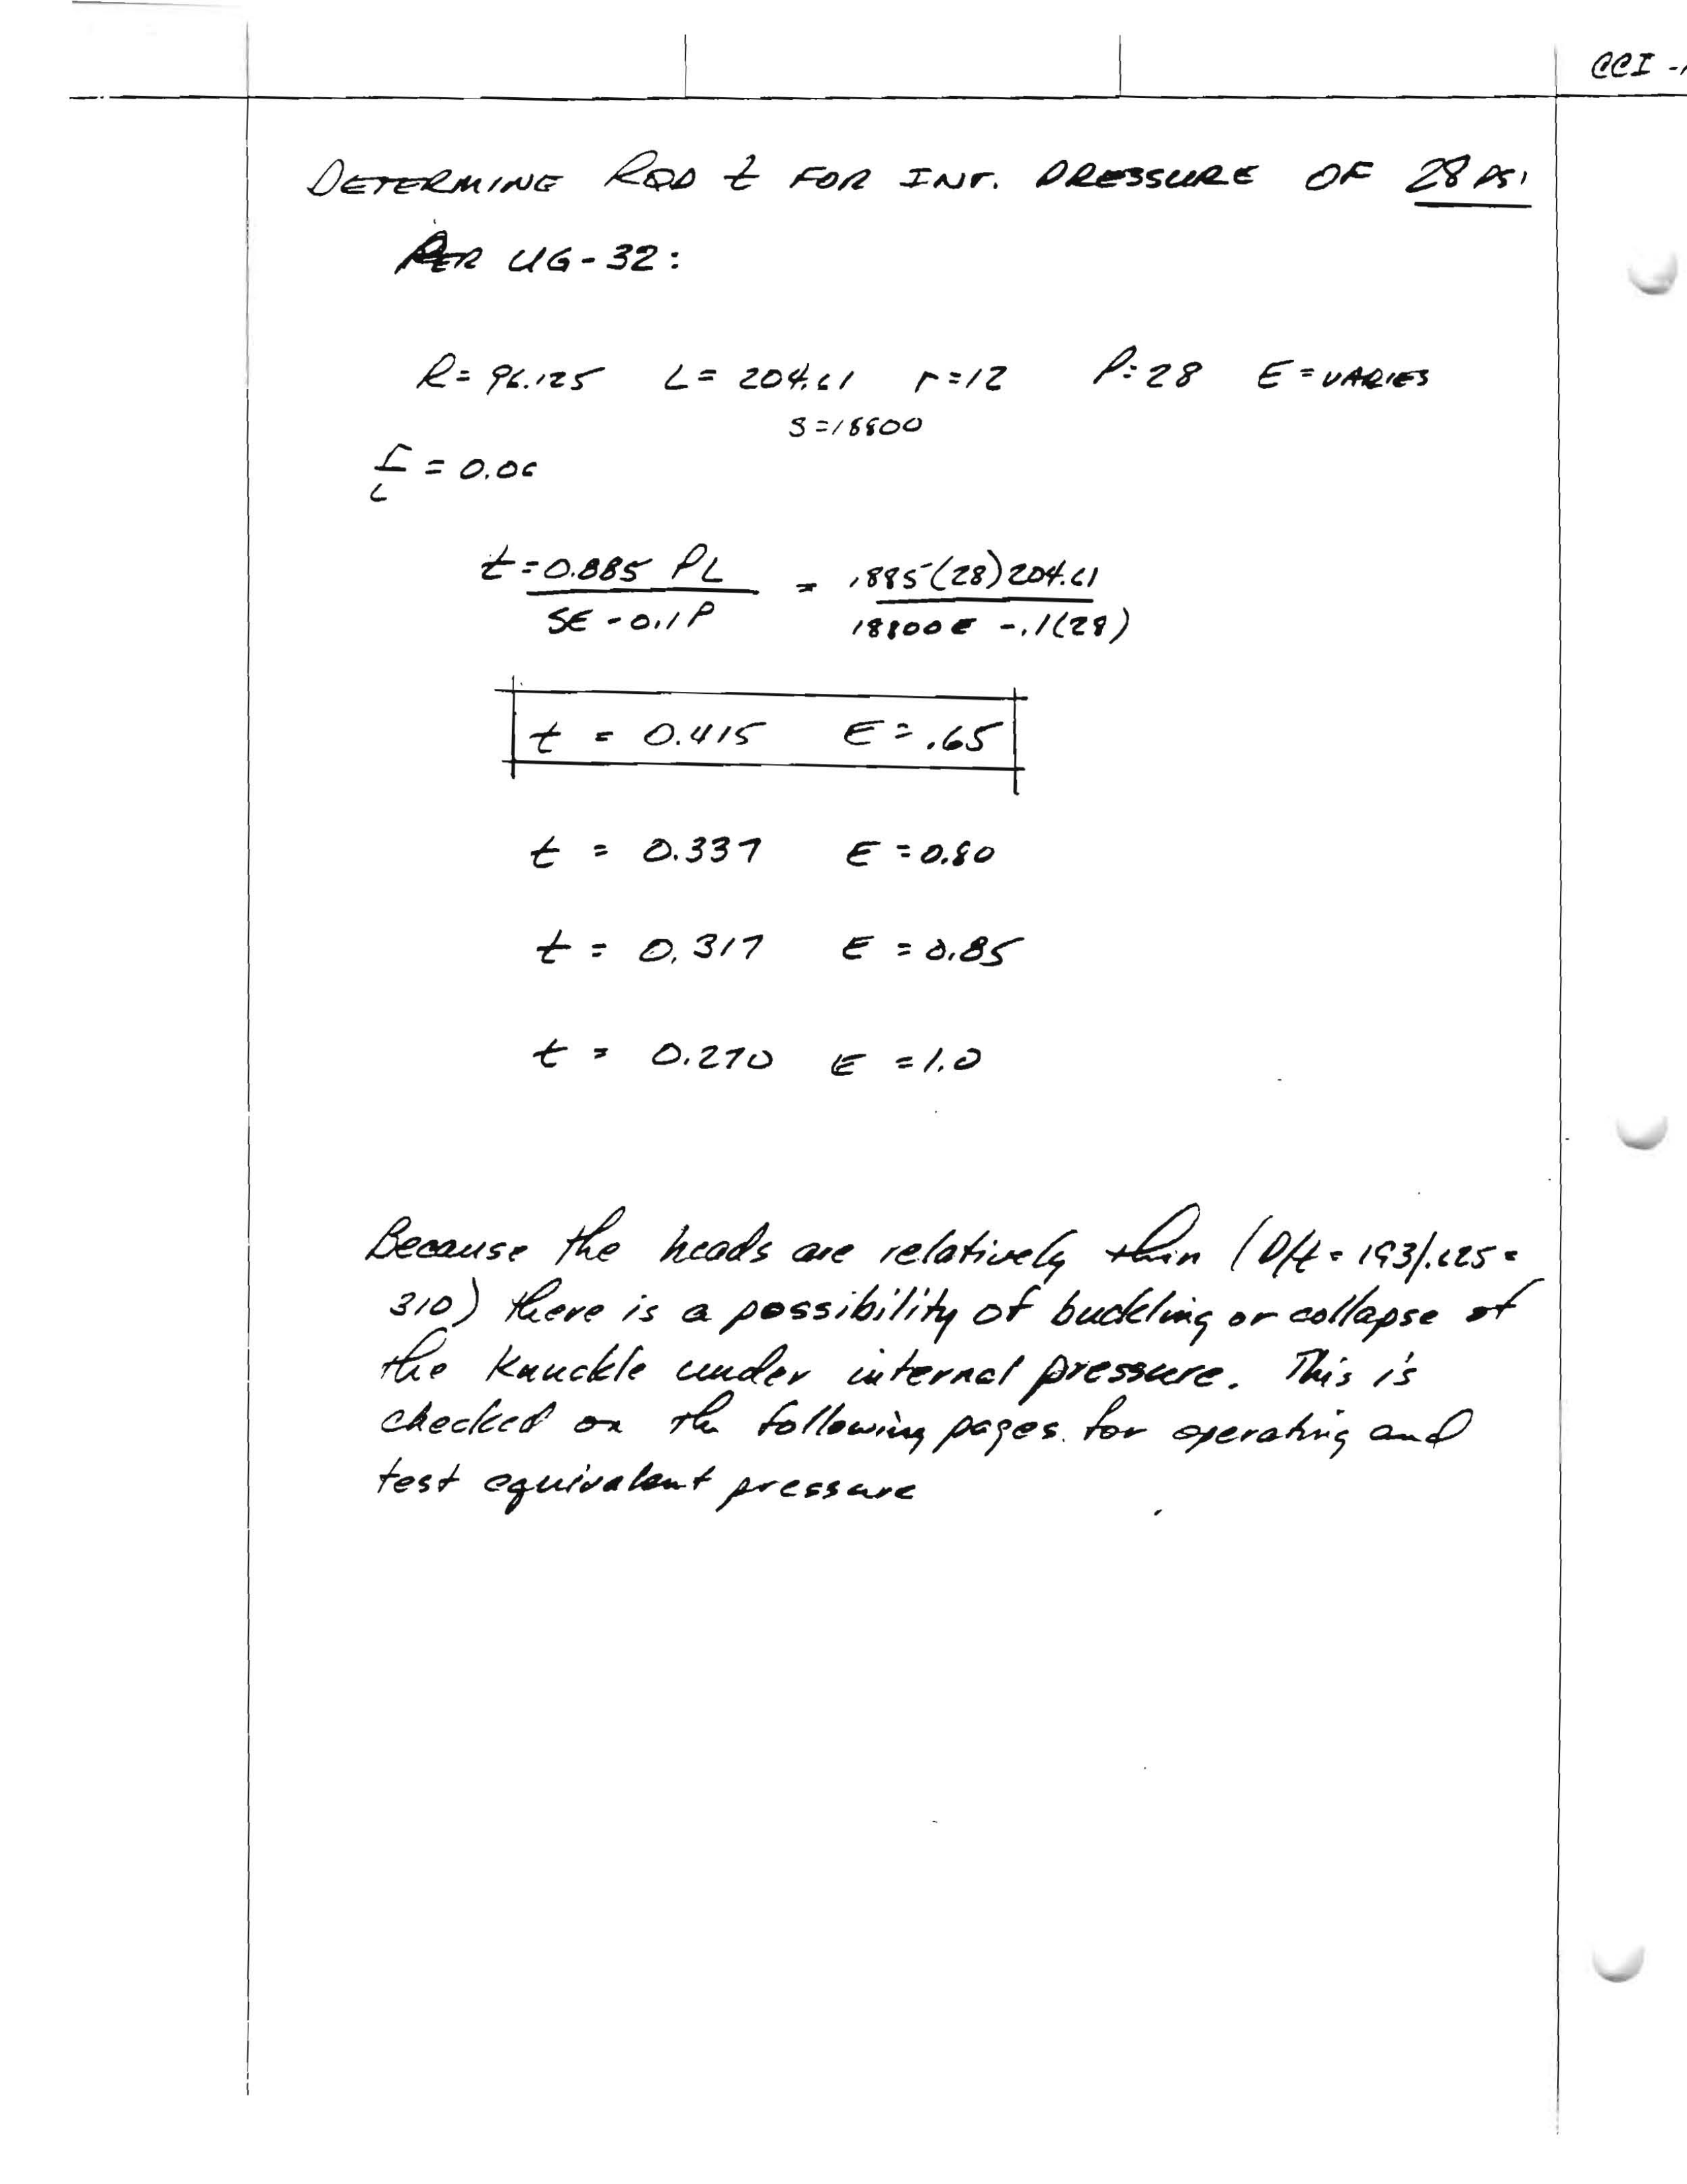 CCI -
DETERMINE RQD t FOR INT. PRESSURE OF 28 PSI
PER UG-32:
R = 96.125 L = 204.61 r = 12 P = 28 E = VARIES
S = 18800
r/L = 0.06
t = 0.885 PL / SE - 0.1P = .885(28)204.61 / 18800E - .1(28)
t = 0.415 E = .65
t = 0.337 E = 0.80
t = 0.317 E = 0.85
t = 0.270 E = 1.0
Because the heads are relatively thin (D/t = 193/.625 =
310) there is a possibility of buckling or collapse of
the Knuckle under internal pressure. This is
checked on the following pages for operating and
test equivalent pressure